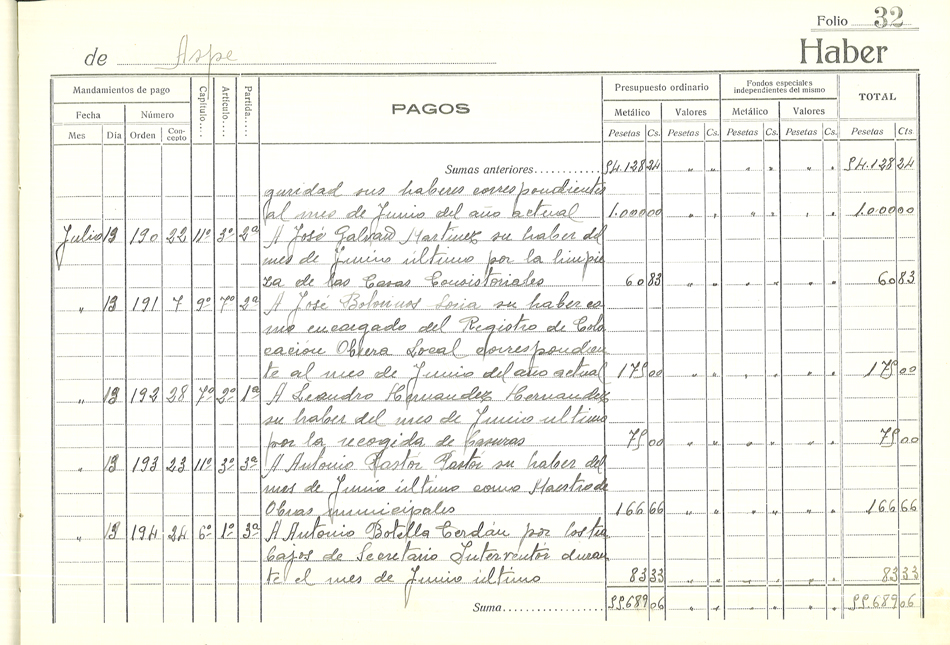 Folio 32
de Aspe Haber
Mandamientos de pago Capítulo.... Artículo.... Partida..... PAGOS Presupuesto ordinario Fondos especiales independientes del mismo TOTAL
Fecha Número Metálico Valores Metálico Valores
Mes Día Orden Con-cepto Pesetas Cs. Pesetas Cs. Pesetas Cs. Pesetas Cs. Pesetas Cts.
Sumas anteriores.......... 54.128 24 " " " " " " 54.128 24
guridad sus haberes correspondientes
al mes de Junio del año actual 1.000 00 " " " " " " 1.000 00
Julio 13 190 22 11º 3º 2ª A José Galvañ Martinez su haber del
mes de Junio último por la limpie
za de las Casas Consistoriales 60 83 " " " " " " 60 83
" 13 191 7 9º 7º 2ª A José Soria su haber co
mo encargado del Registro de Colo
cación Obrera Local correspondien
te al mes de Junio del año actual 175 00 " " " " " " 175 00
" 13 192 28 7º 2º 1ª A Leandro Hernandez Hernandez
su haber del mes de Junio último
por la recogida de basuras 75 00 " " " " " " 75 00
" 13 193 23 11º 3º 3ª A Antonio Pastor Pastor su haber del
mes de Junio último como Maestro de
Obras municipales 166 66 " " " " " " 166 66
" 13 194 24 6º 1º 3ª A Antonio Botella Cerdán por los tra
bajos de Secretario Interventor duran
te el mes de Junio último 83 33 " " " " " " 83 33
Suma................. 55.689 06 " " " " " " 55.689 06